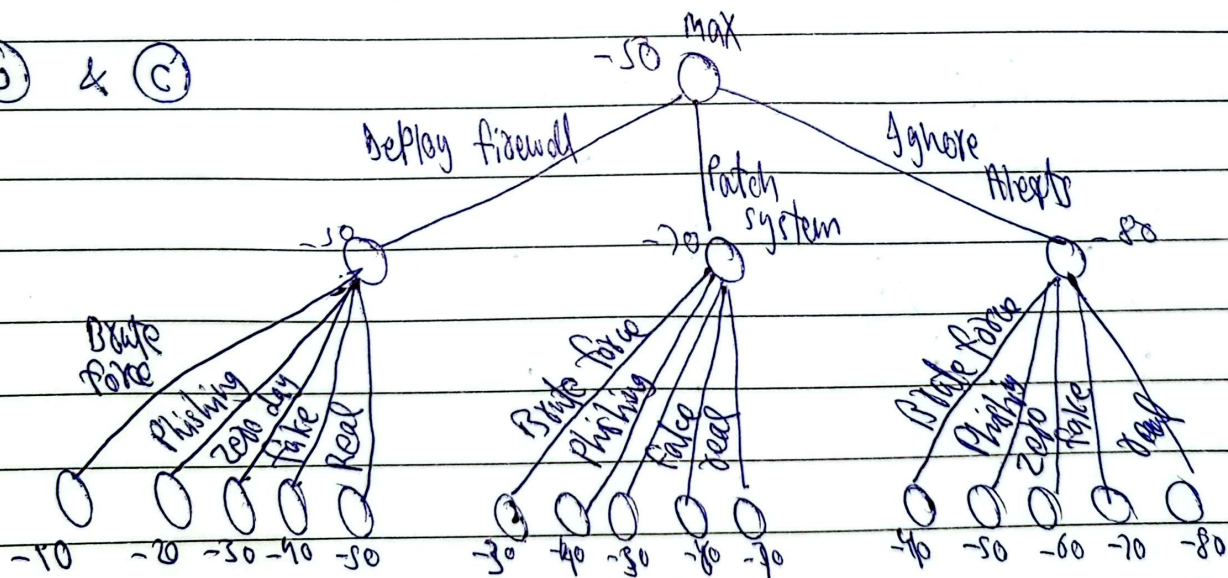 & C
max
-50
Deploy firewall
Ignore
Alerts
Patch
system
-50
-70
-80
Brute
force
Phishing
zero day
fake
Real
Brute force
Phishing
Fake
real
Brute force
Phishing
zero
fake
real
-10 -20 -30 -40 -50 -30 -40 -50 -60 -70 -40 -50 -60 -70 -80